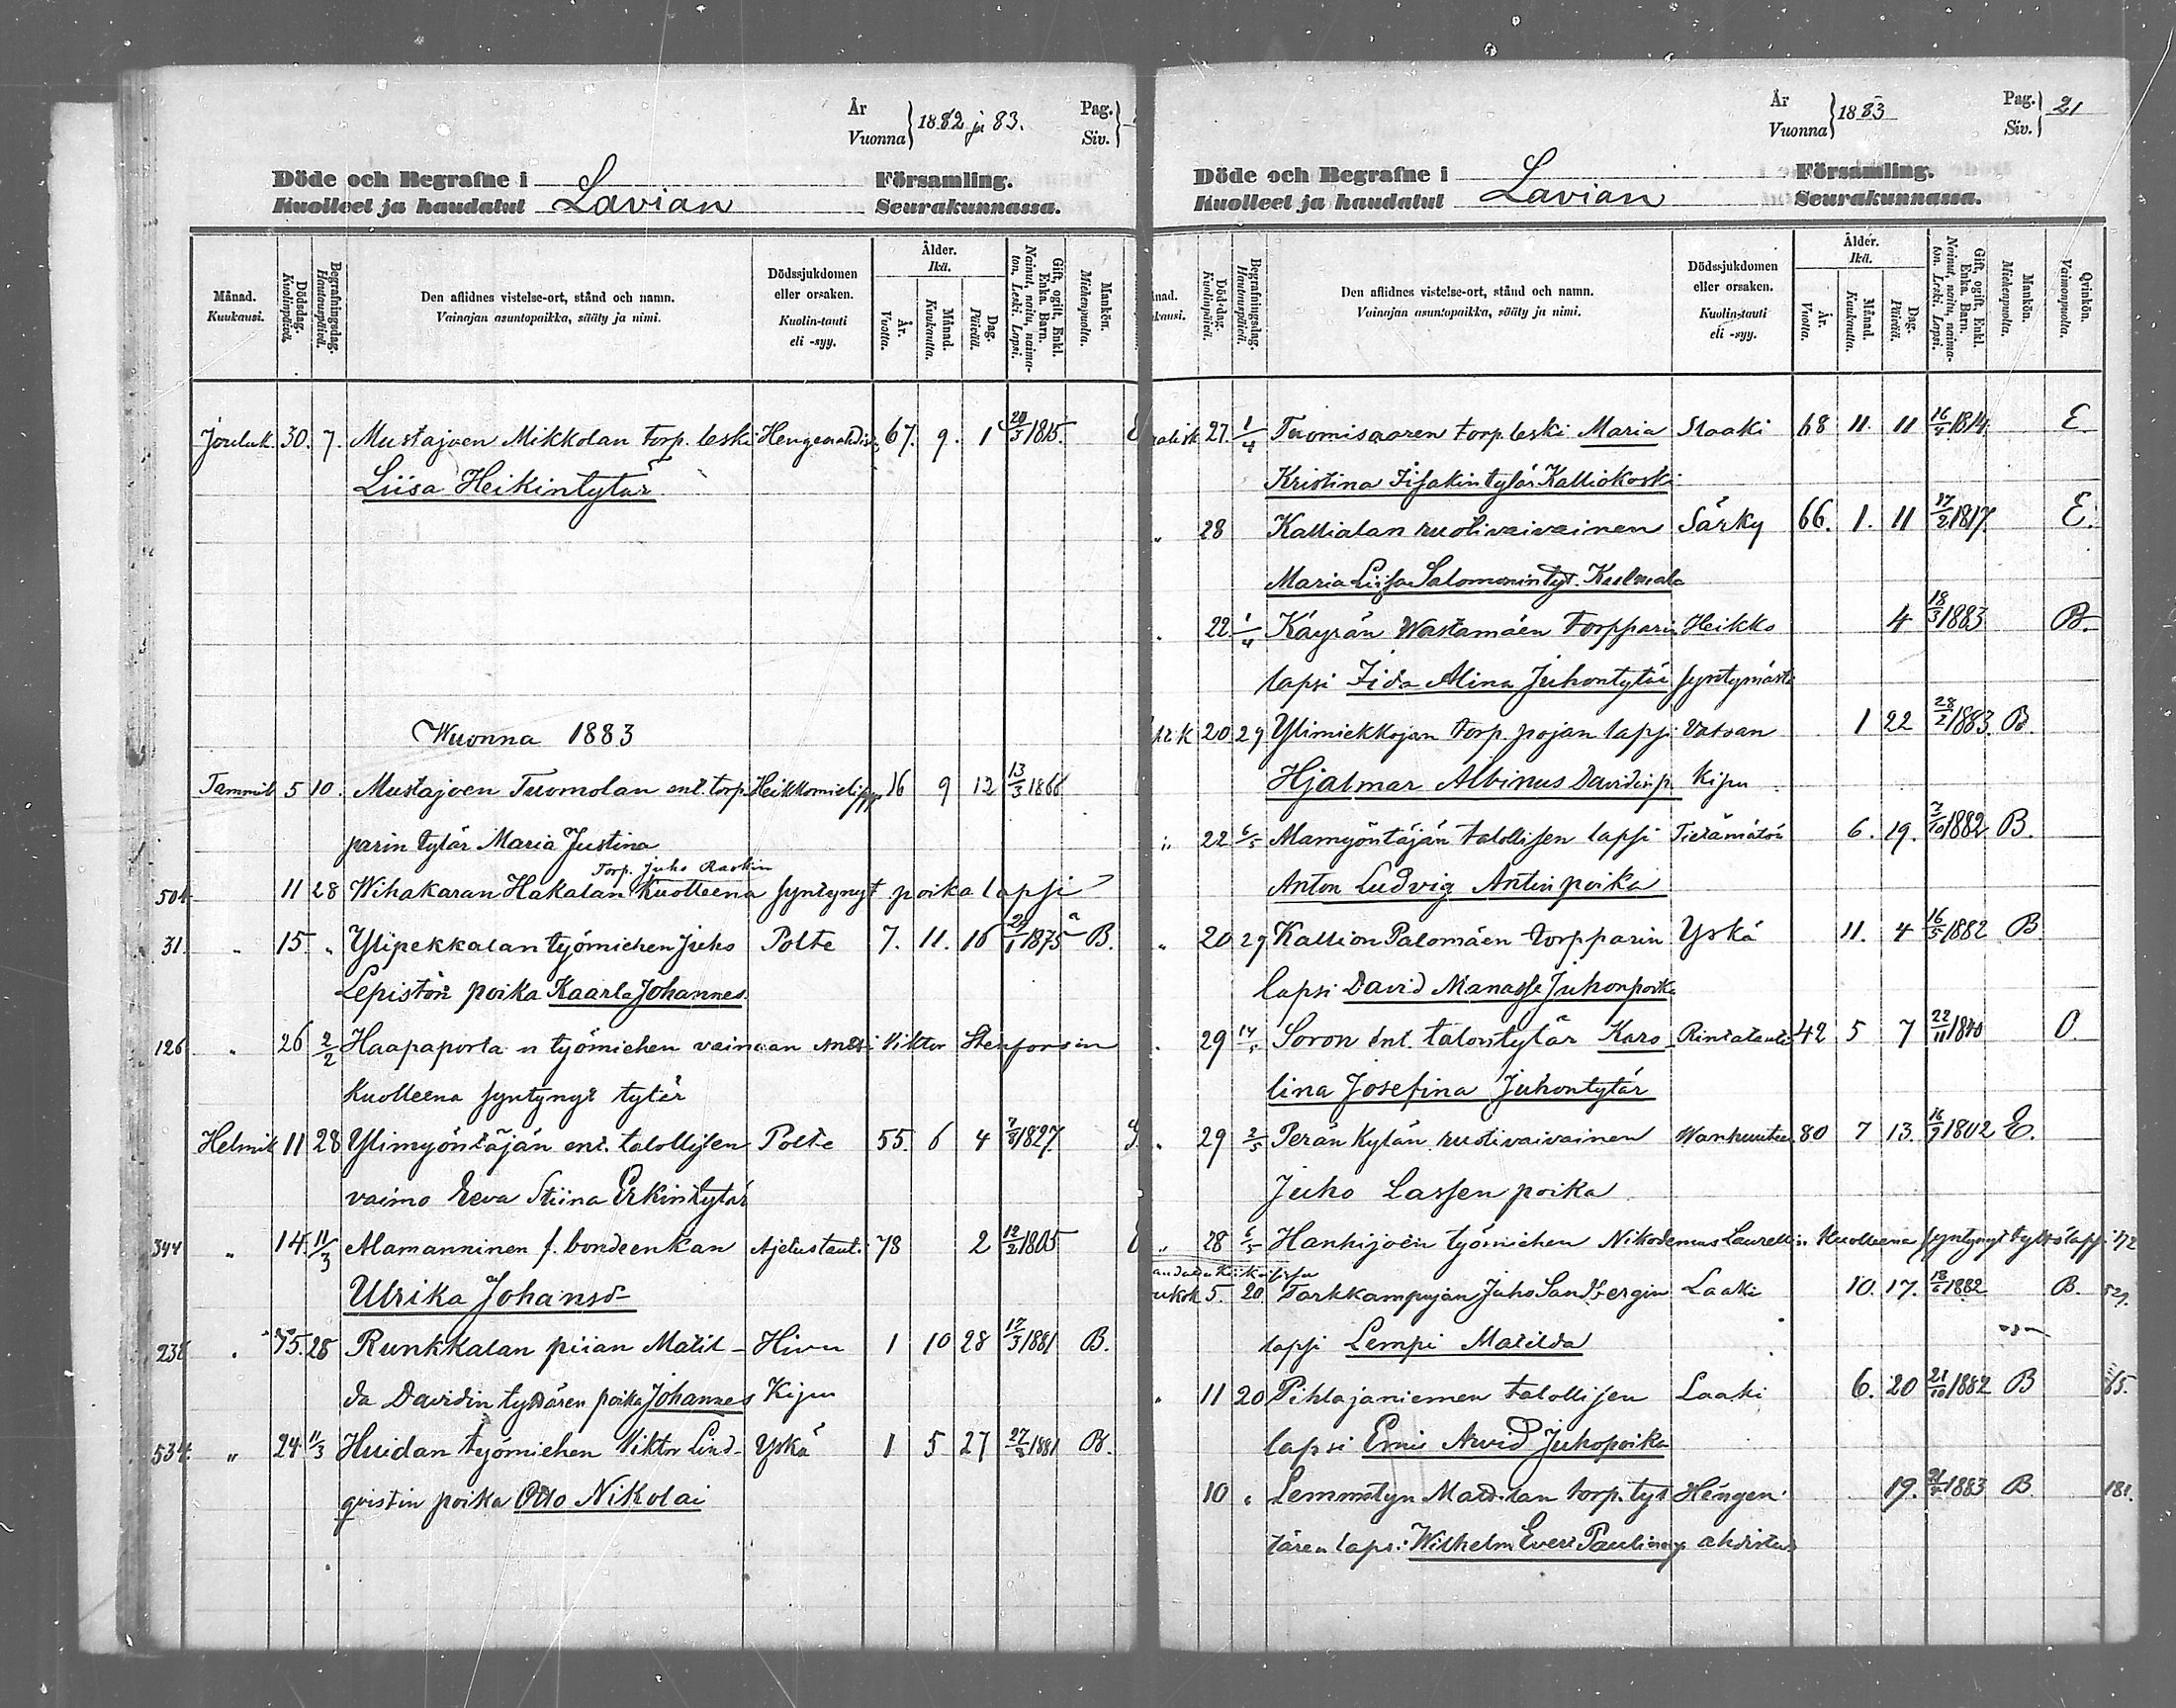 År
Vuonna } 1882 ja 83.
Pag.
Siv. }
Döde och Begrafne i Lavian Församling.
Kuolleet ja haudatut Seurakunnassa.
Månad. Kuukausi. Dödsdag. Kuolinpäivä. Begrafningsdag. Hautauspäivä. Den aflidnes vistelse-ort, stånd och namn. Vainajan asuntopaikka, sääty ja nimi. Dödssjukdomen eller orsaken. Kuolin-tauti eli -syy. Ålder. Ikä. År. Vuotta. Månad. Kuukautta. Dag. Päivää. Gift, ogift, Enkl. Enka. Barn. Nainut, naimaton. Leski. Lapsi. Mankön. Miehenpuolta.
Jouluk. 30. 7. Mustajoen Mikkolan torp. leski 67. 9. 1 20/3 1815
Liisa Heikintytär
Wuonna 1883
Tammik 5 10. Mustajoen Tuomolan ent. torp- 16 9 12 13/3 1866
parin tytär Maria Justina
Torp. Juho Raskin
504 11 28 Wihakaran Hakalan Kuolleena syntynyt poika lapsi
31. " 15. " Ylipekkalan työmiehen Juho Polte 7. 11. 16 29/1 1875 B.
Lepistön poika Kaarlo Johannes.
126 " 26 2/2 Haapaporta n työmiehen vainaan Antti Viktor Stenforsin
Kuolleena syntynyt tytär
Helmik 11 28 Ylimyöntäjän ent. talollisen Polte 55. 6 4 7/8 1827.
vaimo Eeva Stiina Erkintytär
344 " 14. 11/3 Alamanninen f. bondeenkan Ajetustauti 78 2 12/2 1805
Ulrika Johansd-
238 " 15. 28 Runkkalan piian Matil- Hivu 1 10 28 17/3 1881 B.
da Davidin tyttären poika Johannes Kipu
534. " 24. 11/3 Huidan työmiehen Viktor Lind- Yskä 1 5 27 27/8 1881 B.
qvistin poika Otto Nikolai
År
Vuonna } 1883
Pag.
Siv. } 21
Döde och Begrafne i Lavian Församling.
Kuolleet ja haudatut Seurakunnassa.
Dödsdag. Kuolinpäivä. Begrafningsdag. Hautauspäivä. Den aflidnes vistelse-ort, stånd och namn. Vainajan asuntopaikka, sääty ja nimi. Dödssjukdomen eller orsaken. Kuolin-tauti eli -syy. Ålder. Ikä. År. Vuotta. Månad. Kuukautta. Dag. Päivää. Gift, ogift, Enkl. Enka. Barn. Nainut, naimaton. Leski. Lapsi. Mankön. Miehenpuolta. Qvinkön. Vaimonpuolta.
27. 1/4 Tuomisaaren torp. leski Maria Slaaki 68 11. 11 16/4 1814 E.
Kristina Iisakintytär Kalliokoski
" 28 Kallialan ruotivaivainen Särky 66. 1. 11 17/2 1817. E.
Maria Liisa Salomonintyt. Kulmala
" 22 1/4 Käyrän Wastamäen torpparin Heikko 4 18/3 1883 B.
lapsi Iida Alina Juhontytär syntymästä
20 29 Ylimiekkojan torp. pojan lapsi Vatsan 1 22 28/2 1883. B.
Hjalmar Albinus Davidinp. Kipu
" 22 6/5 Mamyöntäjän talollisen lapsi Tietämätön 6. 19. 3/10 1882 B.
Anton Ludvig Antinpoika
" 20 29 Kallion Palomäen torpparin Yskä 11. 4 16/5 1882 B
lapsi David Manasse Juhonpoika
" 29 14/5 Soron ent. talontytär Karo- Rintatauti 42 5 7 22/11 1840 O.
lina Josefina Juhontytär
" 29 2/5 Perän Kylän ruotivaivainen 80 7 13. 16/9 1802 E.
Juho Lassen poika
" 28 6/5 Hanhijoen työmiehen Nikodemus Laurellin Kuolleena syntynyt tyttölapsi 172
5. 20. Tarkkampujan Juho Sandbergin Laaki 10. 17. 18/6 1882 B. 529.
lapsi Lempi Matilda
" 11 20 Pihlajaniemen talollisen Laaki 6. 20 21/10 1882 B
lapsi Arvid Juhopoika
10 " Lemmetyn torp. tyt Hengen- 19. 1883 B. 181.
tären lapsi Wilhelm ahdistus